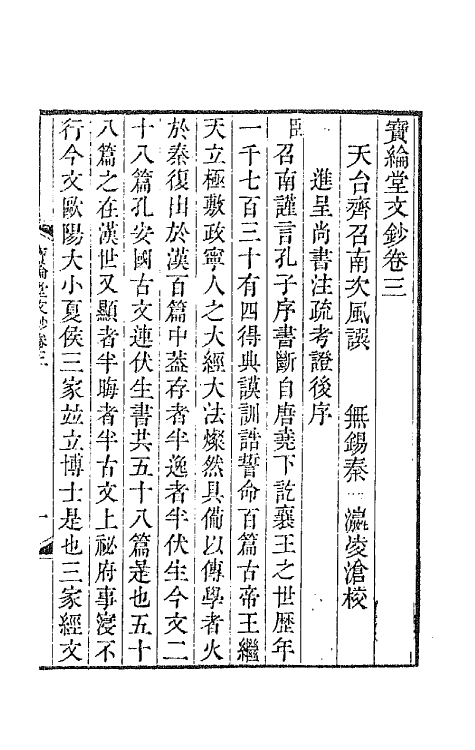 寶綸堂文鈔卷三
天台齊召南次風譔　無錫秦瀛淩滄校
進呈尚書注疏考證後序
臣召南謹言孔子序書斷自唐堯下訖襄王之世歷年
一千七百三十有四得典謨訓誥誓命百篇古帝王繼
天立極敷政寧人之大經大法燦然具備以傳學者火
於秦復出於漢百篇中葢存者半逸者半伏生今文二
十八篇孔安國古文連伏生書共五十八篇是也五十
八篇之在漢世又顯者半晦者半古文上祕府事寖不
行今文歐陽大小夏侯三家竝立博士是也三家經文
寶綸堂文鈔卷三
一